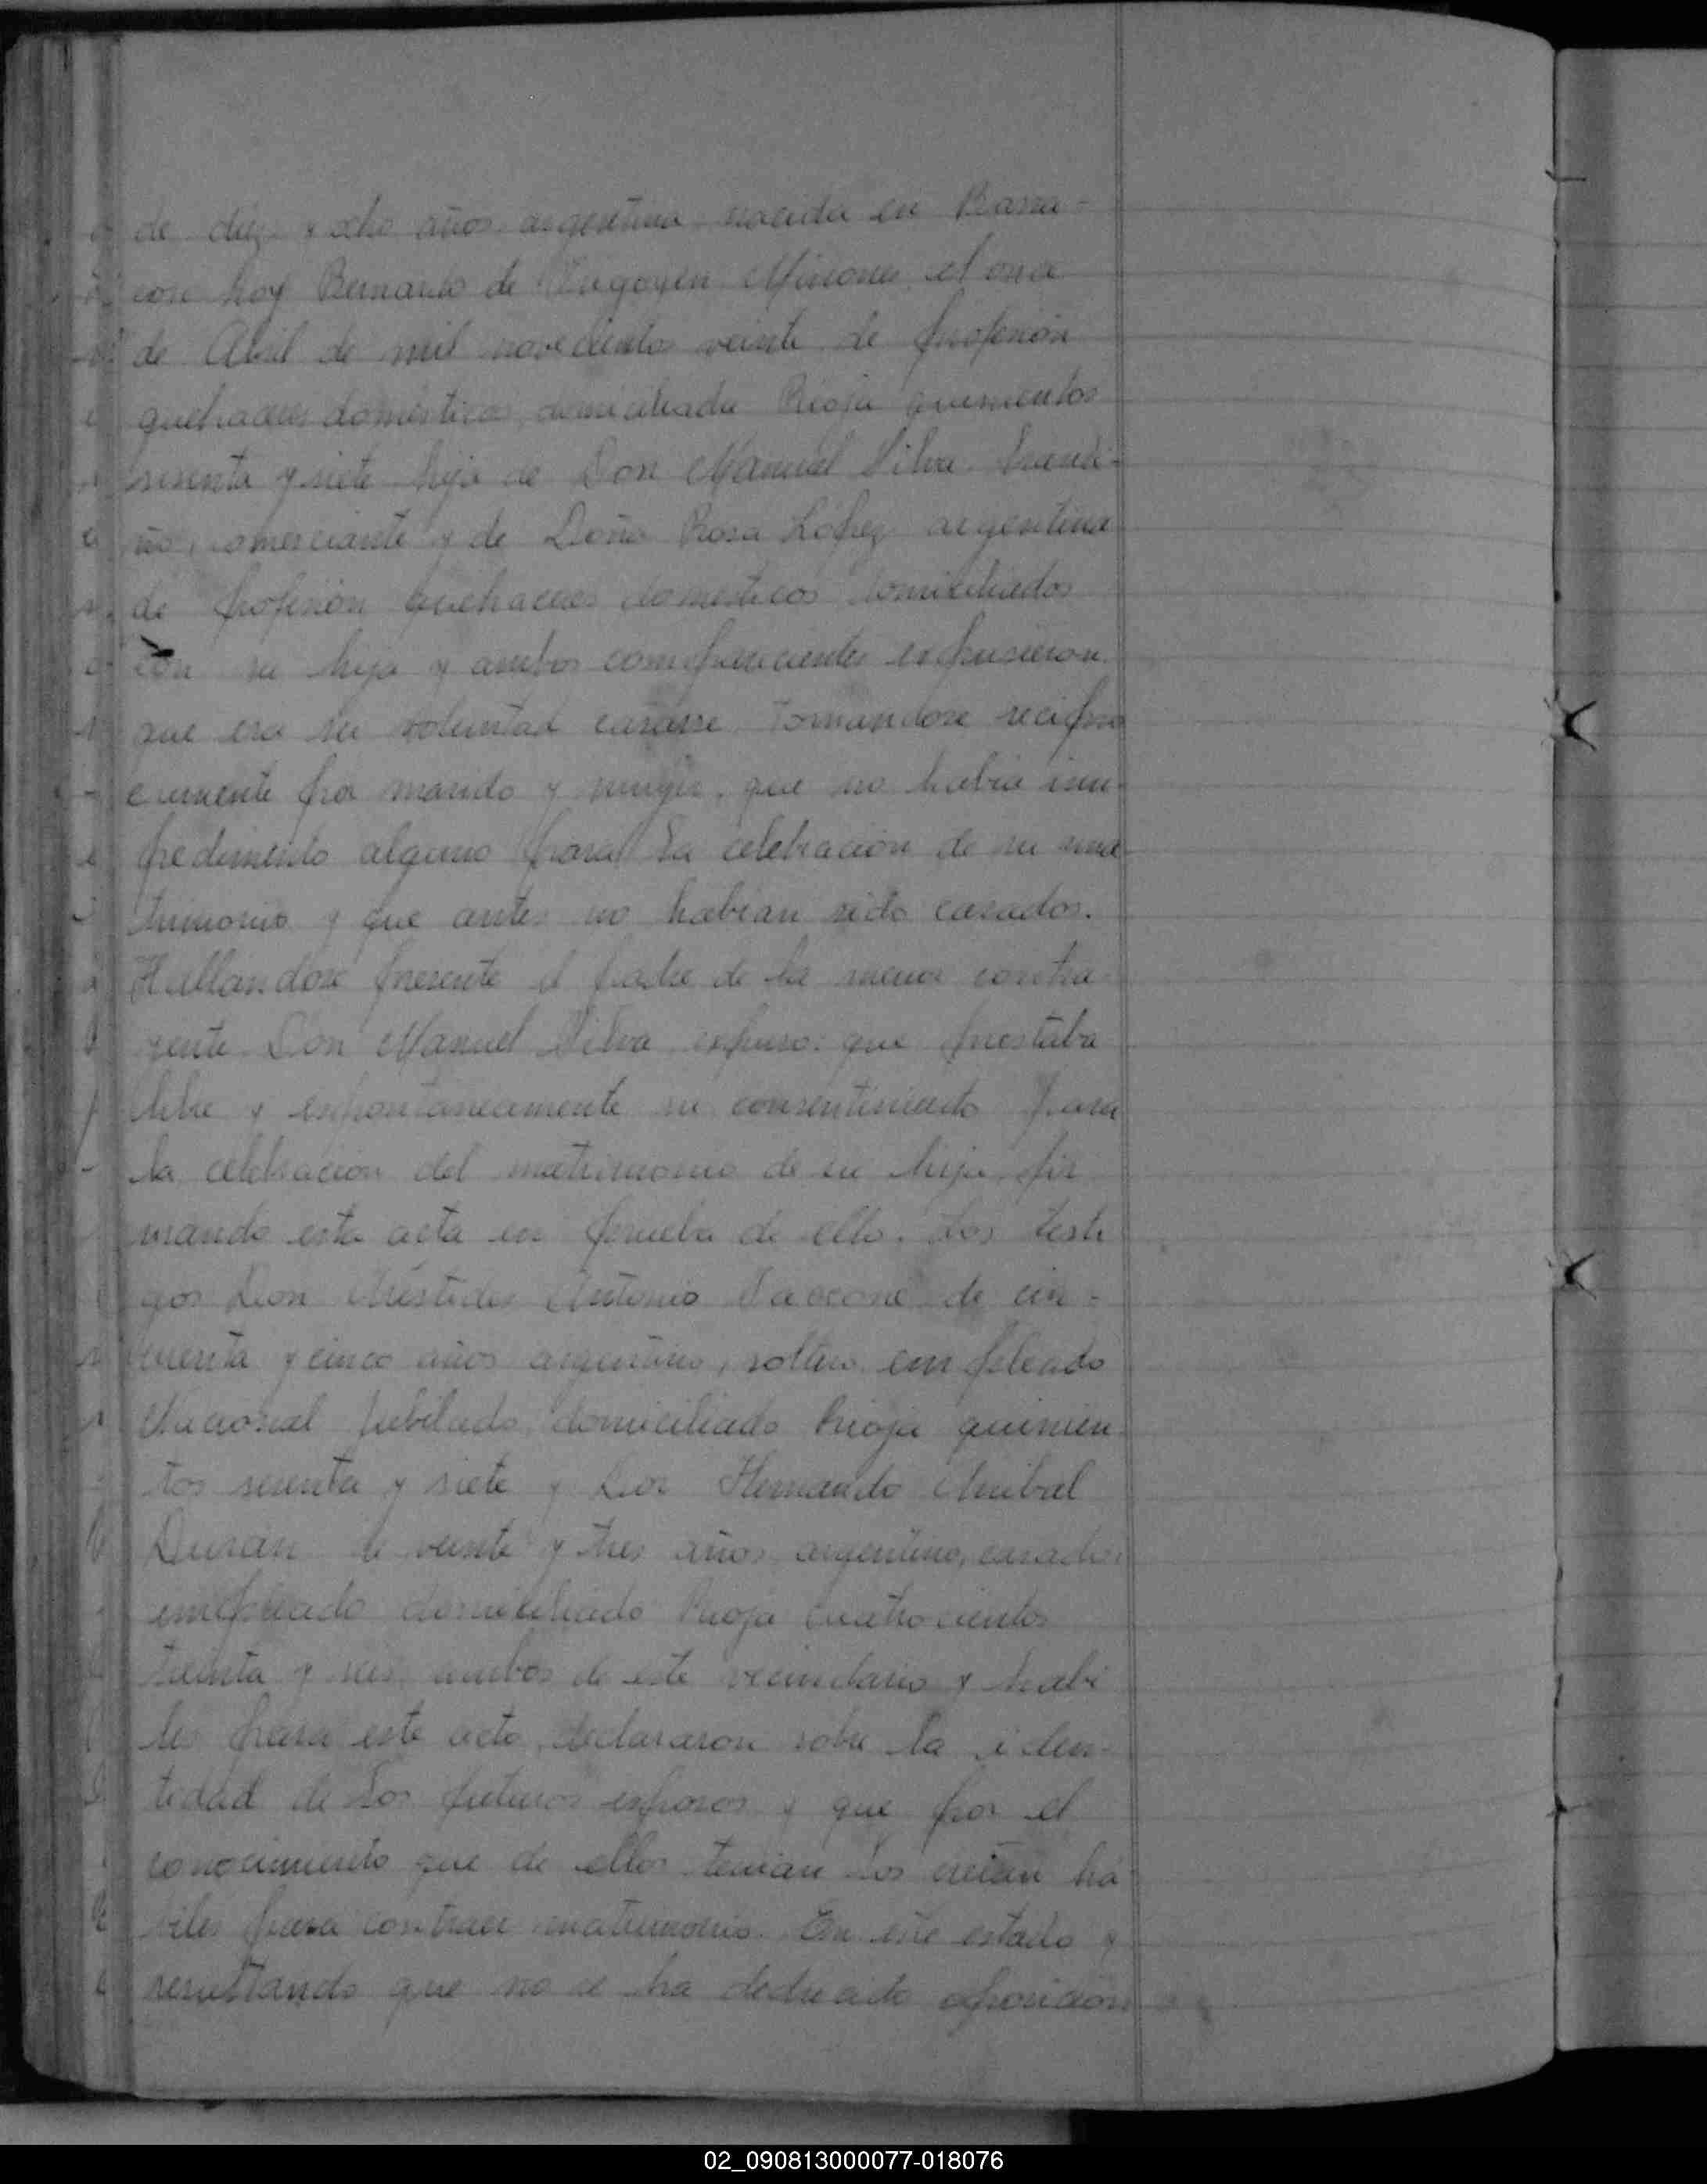 de diez y ocho años argentina nacida en Barra-
con hoy Bernardo de Irigoyen Misiones el once
de Abril de mil novecientos veinte de profesión
quehaceres domésticos, domiciliada Rioja quinientos
sesenta y siete hija de Don Manuel Silva, brasile-
ño, comerciante y de Doña Rosa López argentina
de profesión quehaceres domesticos domiciliados
con su hija y ambos comparecientes expusieron
que era su voluntad casarse tomandose recipro
camente por marido y mujer, que no habia im-
pedimento alguno para la celebracion de su ma
trimonio y que antes no habian sido casados.
Hallandose presente el padre de la menor contra
yente Don Manuel Silva expuso: que prestaba
libre y espontaneamente su consentimiento para
la celebracion del matrimonio de su hija, fir
mando esta acta en prueba de ello. Los testi
gos Don Aristides Antonio de cin-
cuenta y cinco años argentino, soltero, empleado
Nacional jubilado, domiciliado Rioja quinien
tos sesenta y siete y Don Hernando Anibal
Duran de veinte y tres años argentino, casado,
empleado domiciliado Rioja cuatrocientos
treinta y seis ambos de este vecindario y habi
les para este acto, declararon sobre la iden-
tidad de los futuros esposos y que por el
conocimiento que de ellos tenian los creian há
biles para contraer matrimonio. En este estado y
resultando que no se ha deducido oposición
02_090813000077-018076